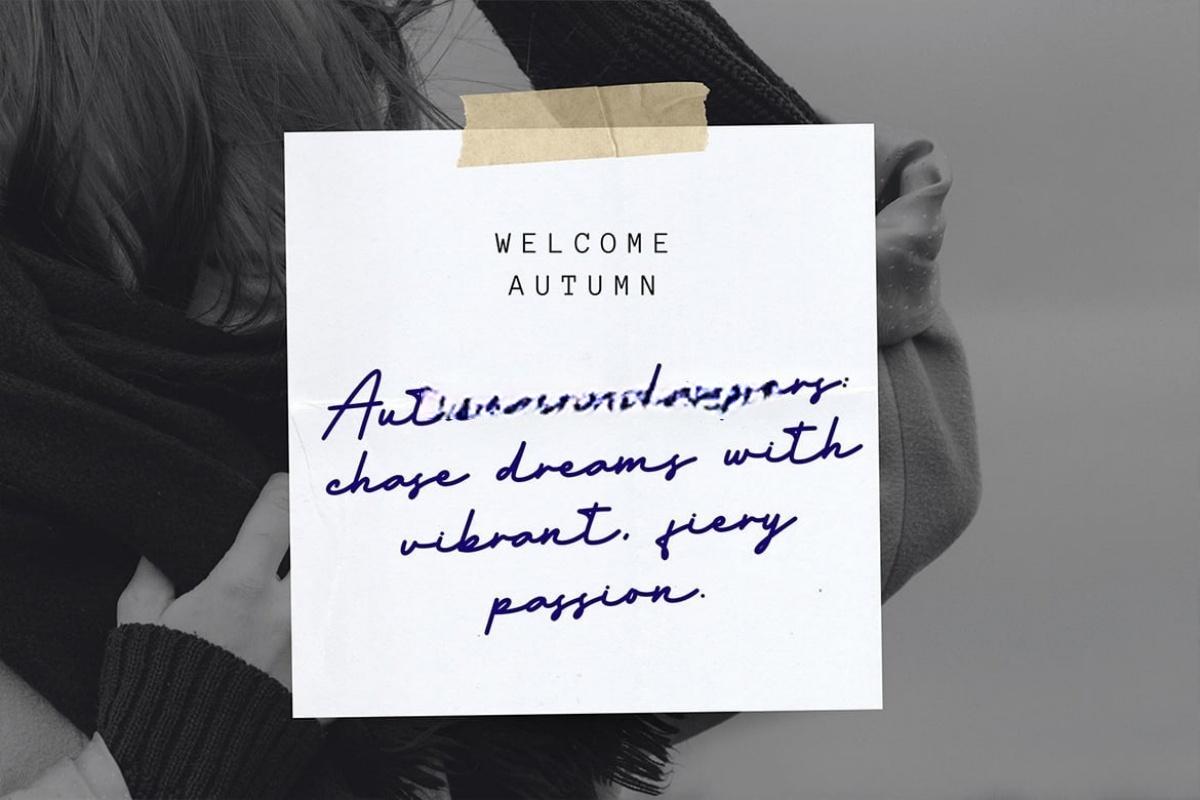 WELCOME
AUTUMN
chase dreams with
vibrant, fiery
passion.